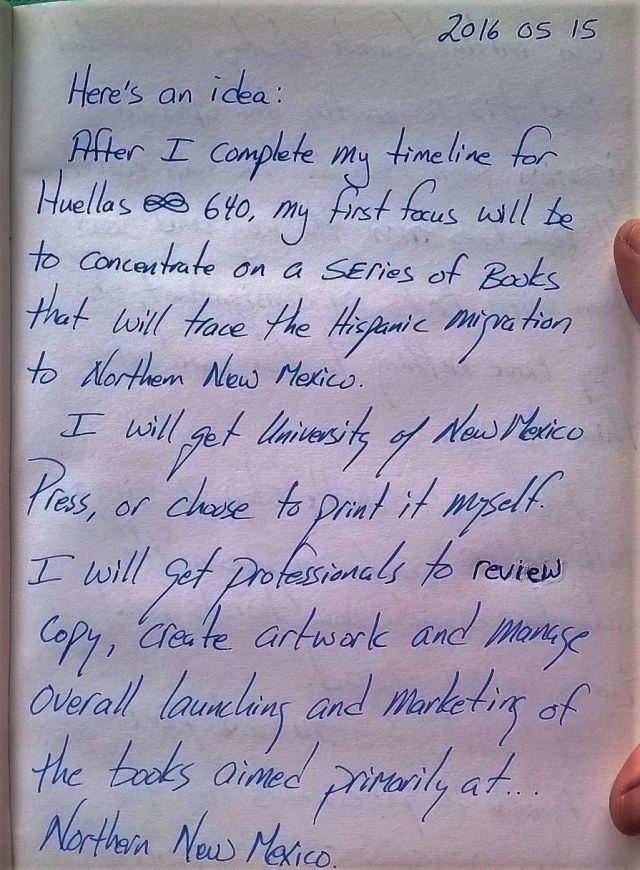 2016 05 15
Here's an idea:
After I complete my timeline for
Huellas ∞ 640, my first focus will be
to concentrate on a SERies of Books
that will trace the Hispanic migration
to Northern New Mexico.
I will get University of New Mexico
Press, or choose to print it myself.
I will get professionals to review
copy, create artwork and manage
overall launching and marketing of
the books aimed primarily at...
Northern New Mexico.